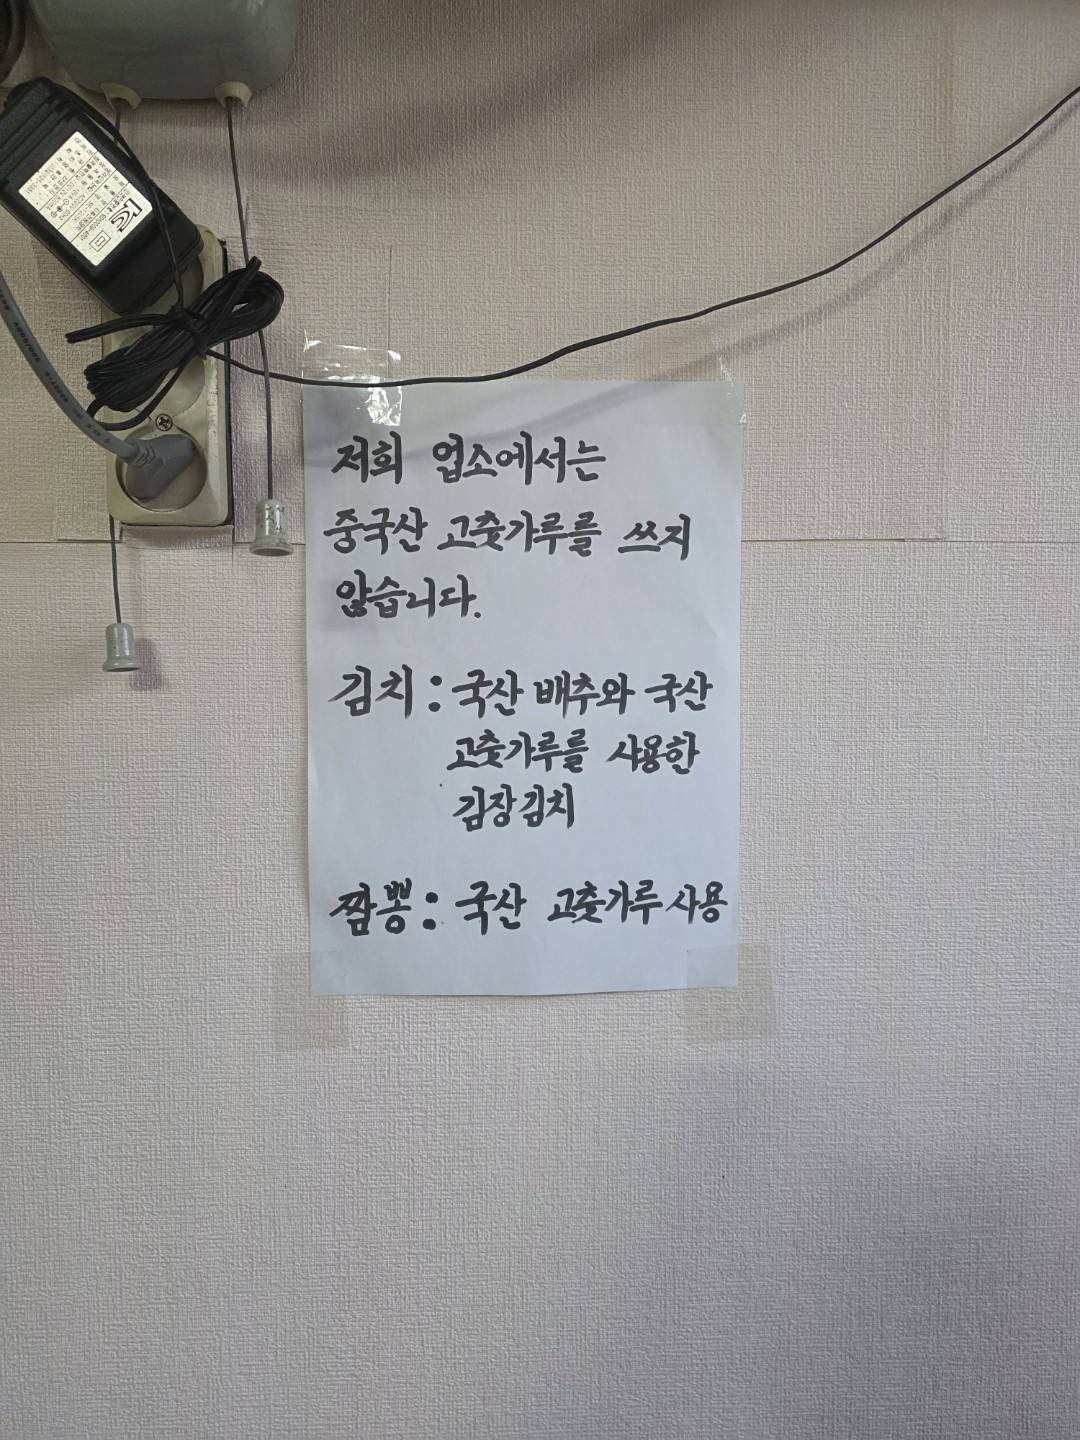 저희 업소에서는
중국산 고춧가루를 쓰지
않습니다.
김치 : 국산 배추와 국산
고춧가루를 사용한
김장김치
짬뽕 : 국산 고춧가루 사용